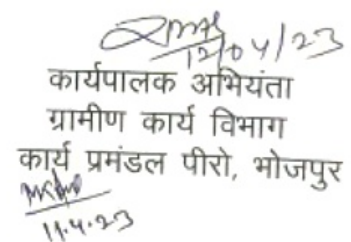 12/04/23
कार्यपालक अभियंता
ग्रामीण कार्य विभाग
कार्य प्रमंडल पीरो, भोजपुर
11.4.23